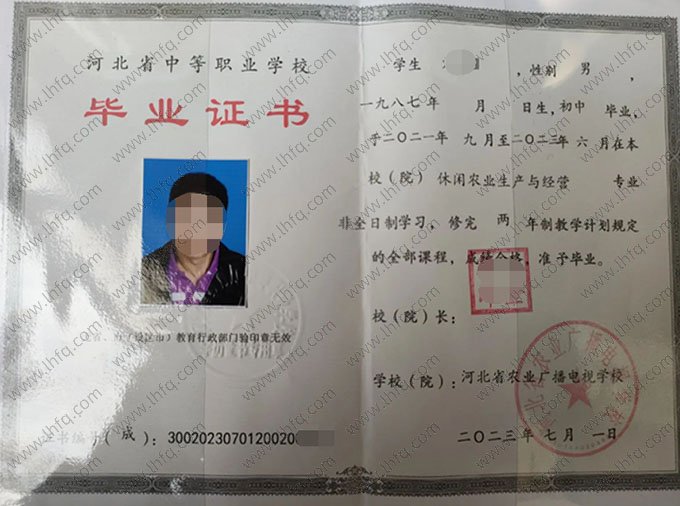 河北省中等职业学校
毕业证书
教育行政部门验印章无效
证书编号(成):30020230701200​20
学生 ,性别 男 ,
一九八七年 月 日生,初中 毕业,
于二〇二一年 九 月至二〇二三年 六 月在本
校(院) 休闲农业生产与经营 专业
非全日制学习,修完 两 年制教学计划规定
的全部课程,成绩合格,准予毕业。
校(院)长:
学校(院):河北省农业广播电视学校
二〇二三年 七月 一日
www.lhfq.com